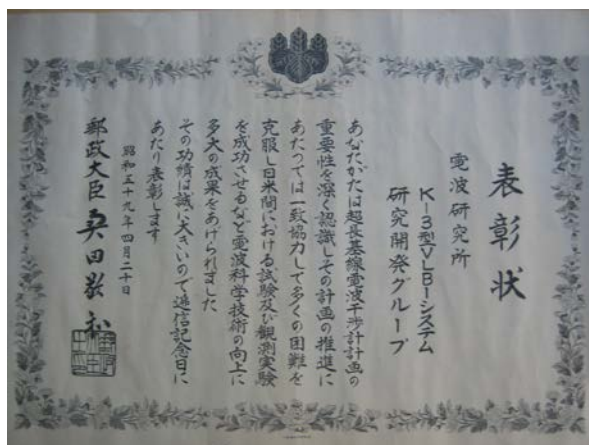 表彰状
電波研究所
K-3型VLBIシステム
研究開発グループ
あなたがたは超長基線電波干渉計計画の
重要性を深く認識しその計画の推進に
あたっては一致協力して多くの困難を
克服し日米間における試験及び観測実験
を成功させるなど電波科学技術の向上に
多大の成果をあげられました
その功績は誠に大きいので逓信記念日に
あたり表彰します
昭和五十九年四月二十日
郵政大臣 奥田敬和